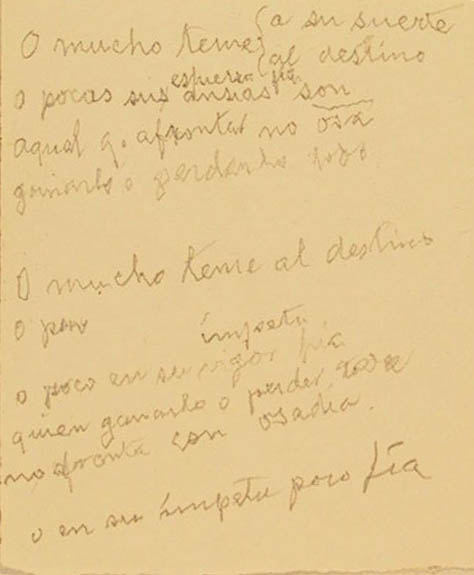 O mucho teme {a su suerte
{al destino
o pocas sus ansias son
esfuerzo fía
aquel q. afrontar no osa
ganarlo o perderlo todo

O mucho teme al destino
o poc
ímpetu
o poco en su vigor fía
quien ganarlo o perder todo
no afronta con osadía.
o en su ímpetu poco fía